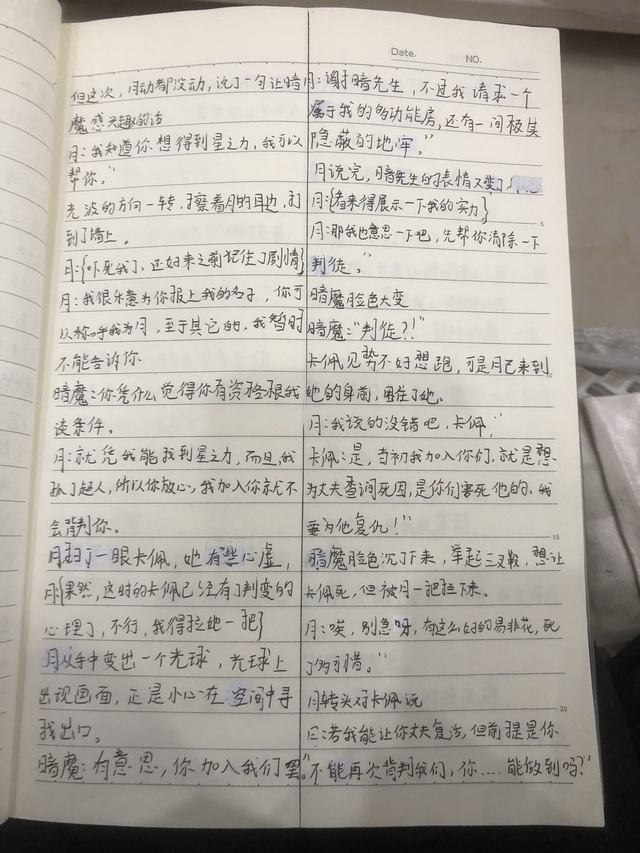 Date.
NO.
但这次，月动都没动，说了一句让暗
魔感兴趣的话
月：我知道你想得到星之力，我可以
帮你。”
光波的方向一转，擦着月的耳边，打
到了墙上。
月：{吓死我了，还好来之前记住了剧情}
月：我很乐意为你报上我的名字，你可
以称呼我为月，至于其它的，我暂时
不能告诉你
暗魔：你凭什么觉得你有资格跟我
谈条件。
月：就凭我能找到星之力，而且，我
抓了超人，所以你放心，我加入你就不
会背判你。
月扫了一眼卡佩，她有些心虚，
月{果然，这时的卡佩已经有了判变的
心理了，不行，我得拉她一把}
月从手中变出一个光球，光球上
出现画面，正是小心在空间中寻
找出口。
暗魔：有意思，你加入我们罢。”
月：谢谢暗先生，不过我请求一个
属于我的多功能房，还有一间极其
隐蔽的地牢。”
月说完，暗先生的表情又变了
月：{看来得展示一下我的实力}
月：那我也意思一下吧，先帮你清除一下
判徒。”
暗魔脸色大变
暗魔：“判徒？！”
卡佩见势不好想跑，可是月已来到
她的身前，困住了她。
月：我说的没错吧，卡佩，”
卡佩：是，当初我加入你们，就是想
为丈夫查询死因，是你们害死他的，我
要为他复仇！”
暗魔脸色沉了下来，举起三叉戟，想让
卡佩死，但被月一把拉下来。
月：唉，别急呀，有这么好的易非花，死
了多可惜。”
月转头对卡佩说
月：若我能让你丈夫复活，但前提是你
“不能再次背判我们，你……能做到吗？”
5
10
15
20